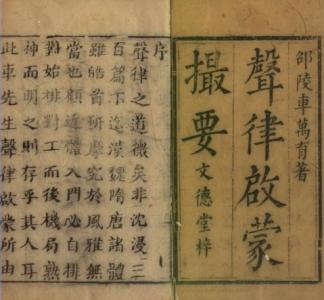 邵陵車萬育著
聲律啟蒙
撮要
文德堂梓
序
聲律之道微矣非沈漫三
百篇下迄漢魏隋唐諸體
雖皓首研摩究於風雅無
當也顧近體入門必自排
對始排對工而後機局熟
神而明之則存乎其人耳
此車先生聲律啟蒙所由